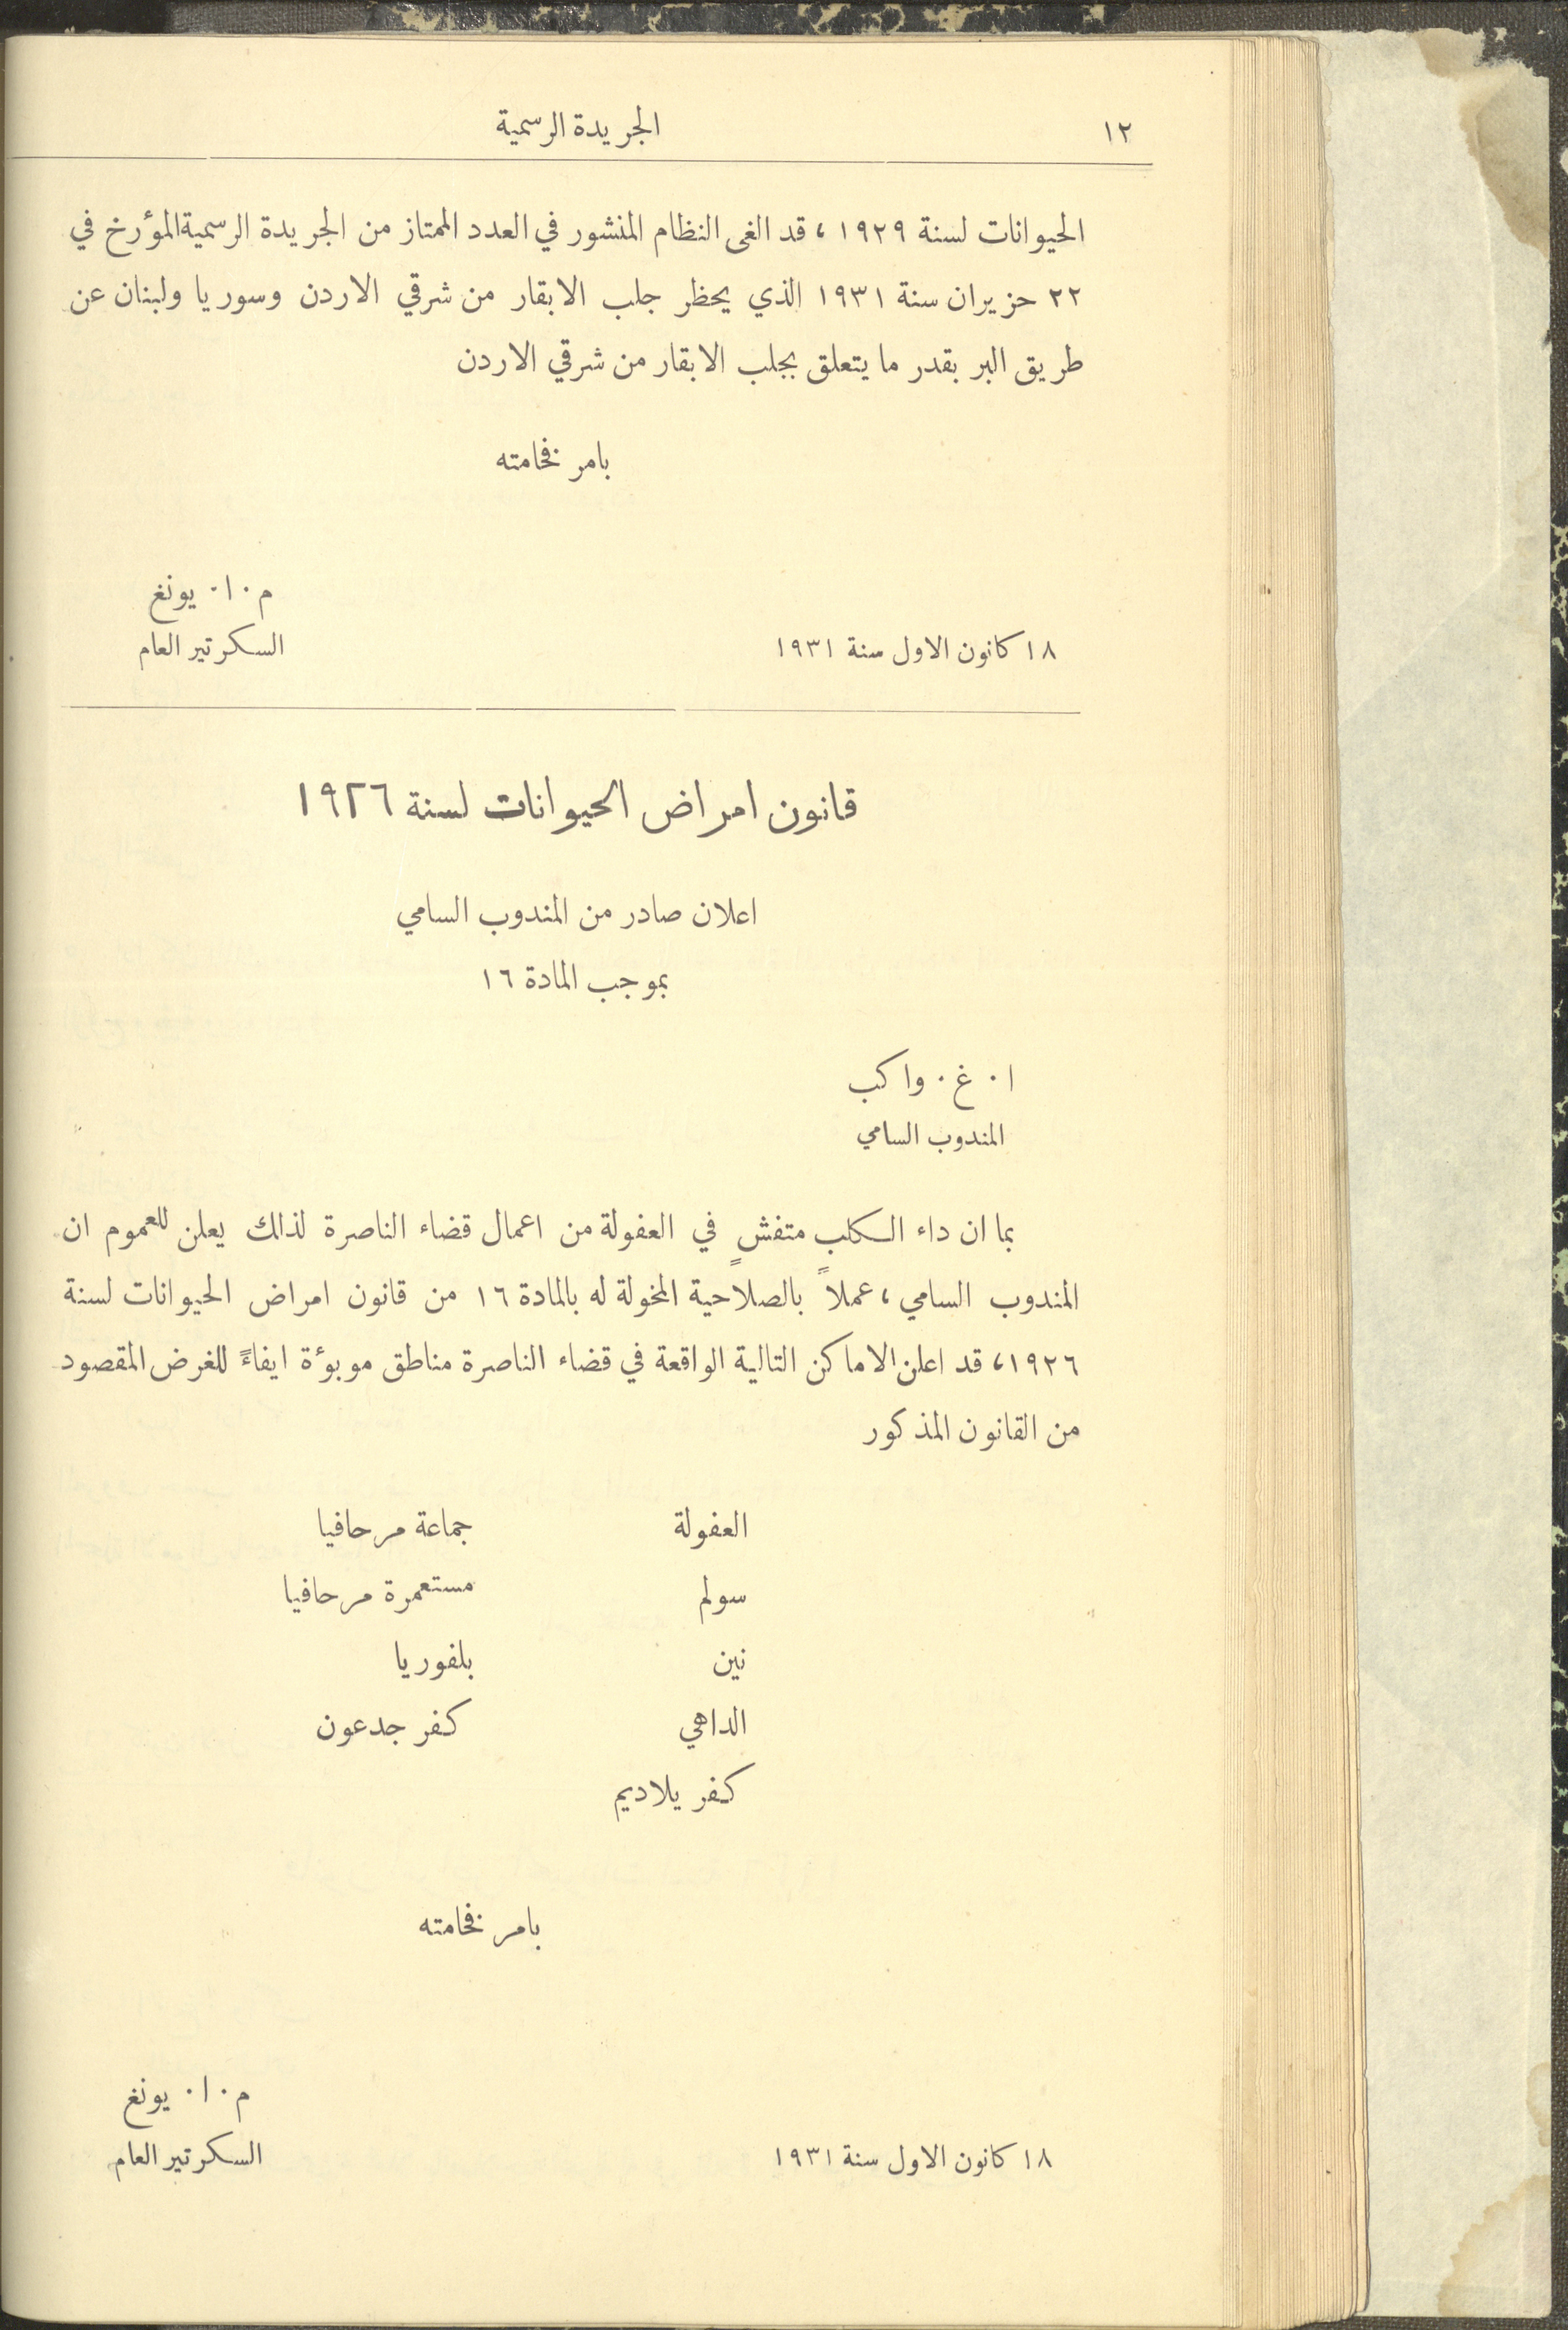 ١٢
الجريدة الرسمية
الحيوانات لسنة ١٩٢٩، قد الغى النظام المنشور في العدد الممتاز من الجريدة الرسمية المؤرخ في
٢٢ حزيران سنة ١٩٣١ الذي يحظر جلب الابقار من شرقي الاردن وسوريا ولبنان عن
طريق البر بقدر ما يتعلق بجلب الابقار من شرقي الاردن
بامر فخامته
م٠ا٠ يونغ
السكرتير العام
١٨ كانون الاول سنة ١٩٣١
قانون امراض الحيوانات لسنة ١٩٢٦
اعلان صادر من المندوب السامي
بموجب المادة ١٦
ا٠ غ٠ واكب
المندوب السامي
بما ان داء الكلب متفشٍ في العفولة من اعمال قضاء الناصرة لذلك يعلن للعموم ان
المندوب السامي، عملاً بالصلاحية المخولة له بالمادة ١٦ من قانون امراض الحيوانات لسنة
١٩٢٦، قد اعلن الاماكن التالية الواقعة في قضاء الناصرة مناطق موبوٴة ايفاءً للغرض المقصود
من القانون المذكور
العفولة جماعة مرحافيا
سولم مستعمرة مرحافيا
نين بلفوريا
الداهي كفر جدعون
كفر يلاديم
بامر فخامته
م٠ا٠ يونغ
السكرتير العام
١٨ كانون الاول سنة ١٩٣١